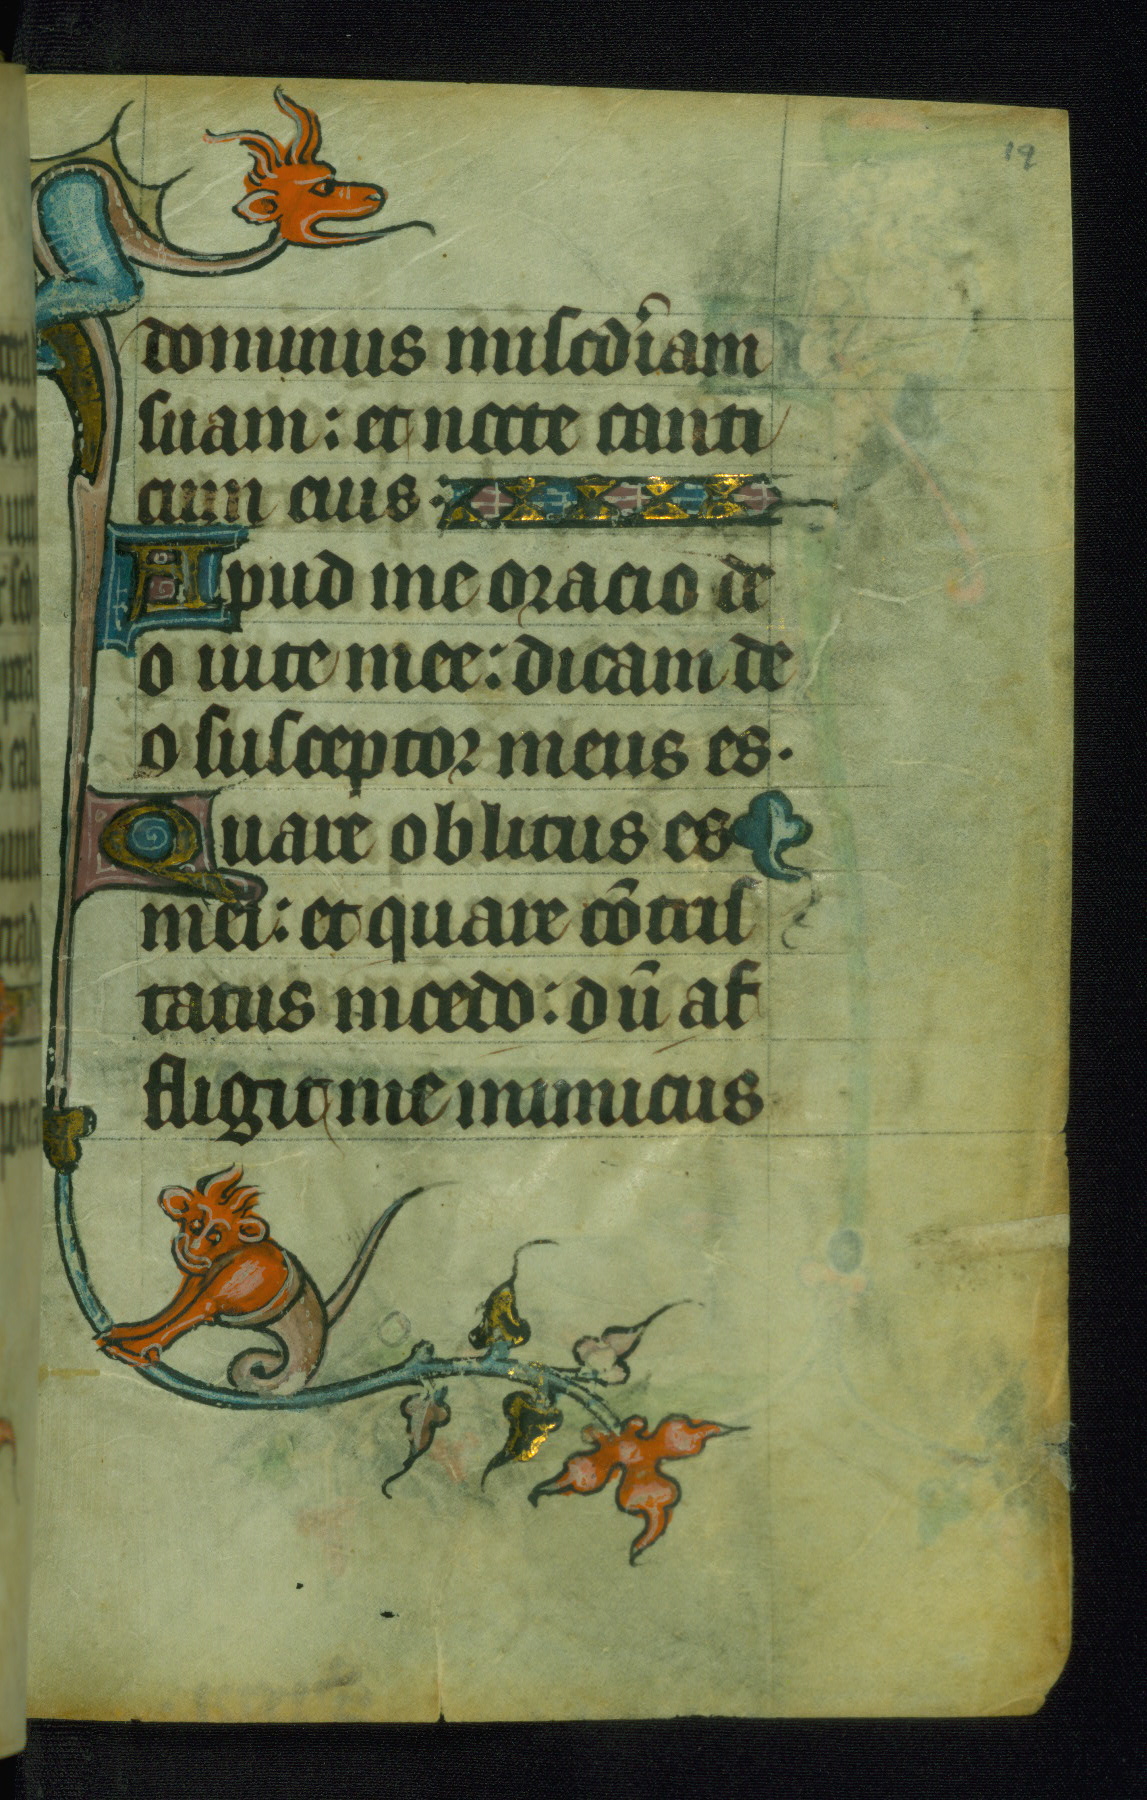 19
dominus miscd'iam
suam : et nocte canti
cum eius :
Apud me oracio de
o uite mee : dicam de
o susceptor meus es .
Quare oblitus es
mei : et quare cōtris
tatus incedo : dū af
fligit me inimicus